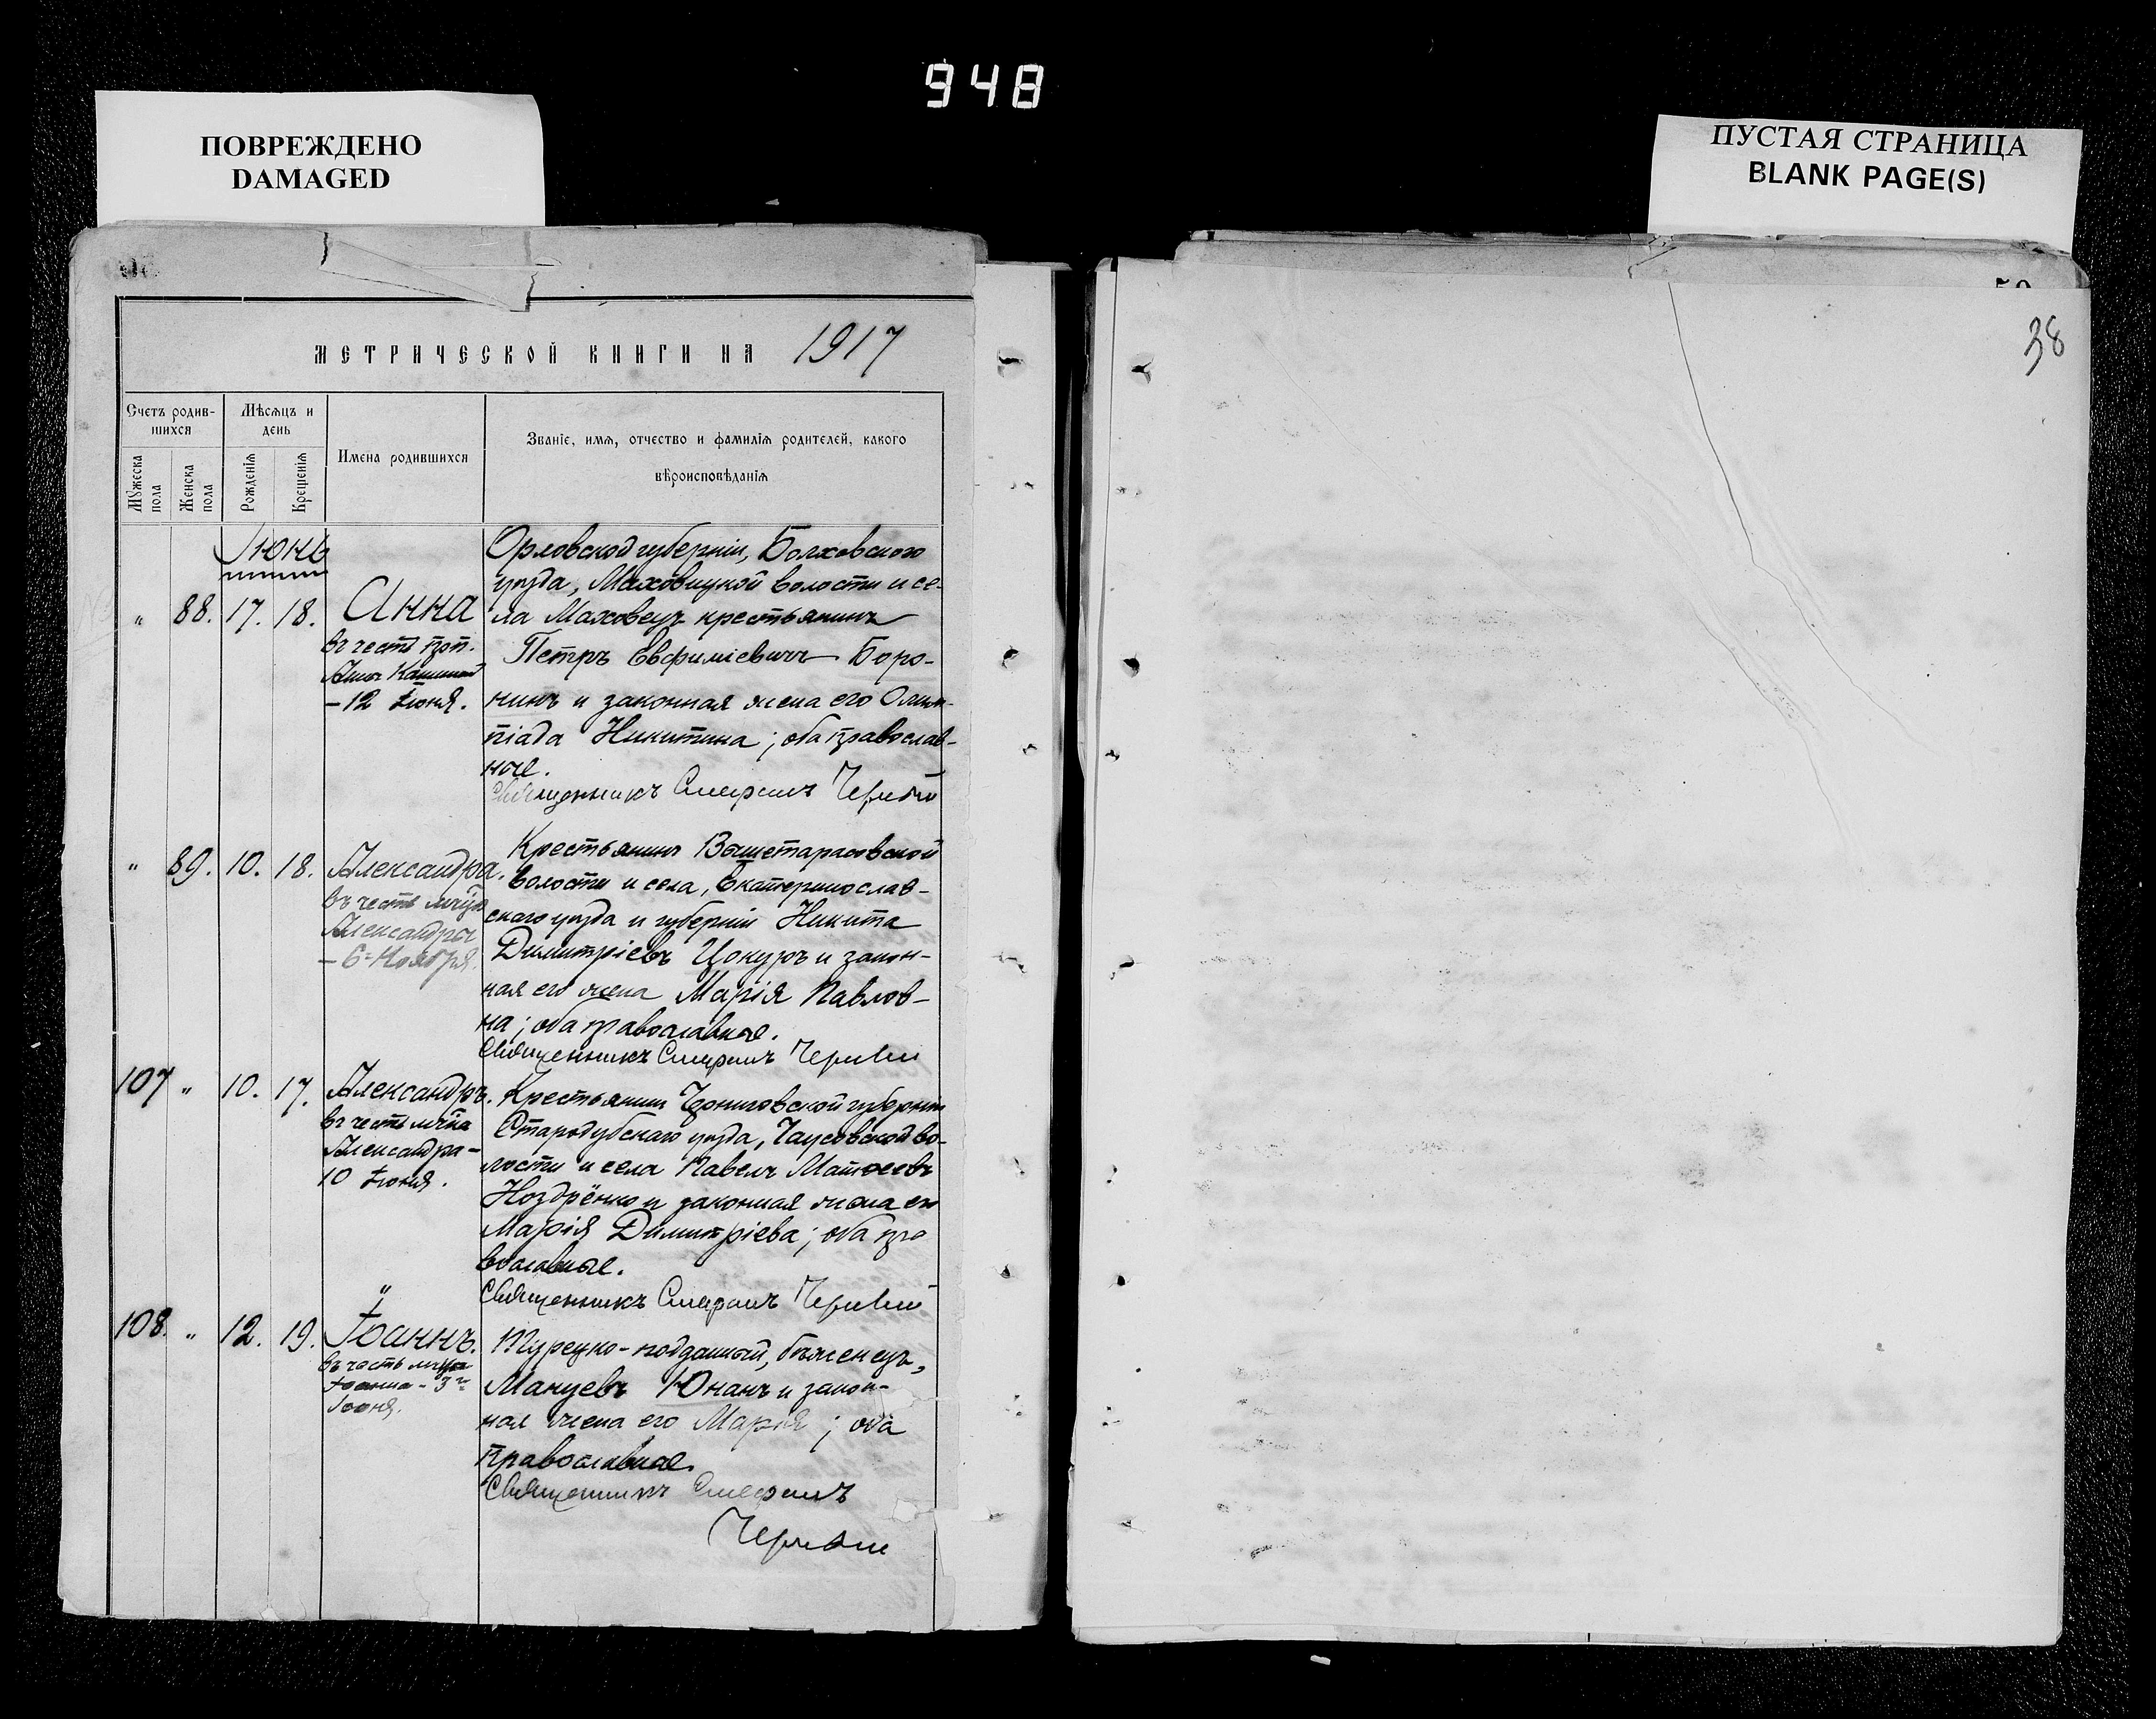 948
ПОВРЕЖДЕНО
DAMAGED
ПУСТАЯ СТРАНИЦА
BLANK PAGE(S)
38
МЕТРИЧЕСКОЙ КНИГИ НА 1917
Счетъ родив-
шихся
Мѣсяцъ и
день
Имена родившихся
Званіе, имя, отчество и фамилія родителей, какого
вѣроисповѣданія
Мужеска
пола
Женска
пола
Рожденія
Крещенія
Іюнь
„ 88. 17. 18. Анна
въ честь прп.
Анны
– 12 Іюня.
Орловской губерніи, Болховскаго
уѣзда, Маховицкой волости и се-
ла Маховецъ крестьянинъ
Петръ Евфиміевичъ Боро-
нинъ и законная жена его Олим-
піада Никитина; оба православ-
ные.
Священникъ Черный
„ 89. 10. 18. Александра.
въ честь мчцы
Александры
– 6 Ноября.
Крестьянинъ Вышетарасовской
волости и села, Екатеринослав-
скаго уѣзда и губерніи Никита
Димитріевъ Цокуръ и закон-
ная его жена Марія Павлов-
на; оба православные.
Священникъ Черный
107 „ 10. 17. Александръ.
въ честь мч̃ка
Александра –
10 Іюня.
Крестьянинъ Черниговской губерніи
Стародубскаго уѣзда, Чаусовской во-
лости и села Павелъ Матѳеевъ
Ноздрёнко и законная жена его
Марія Димитріева; оба пра
вославные.
Священникъ Черный
108. „ 12. 19. Іоаннъ.
въ честь
Іоанна – 3
Іюня.
Турецко-подданный, бѣженецъ,
Мануевъ Юнанъ и закон-
ная жена его Марія; оба
православные.
Священникъ
Черный